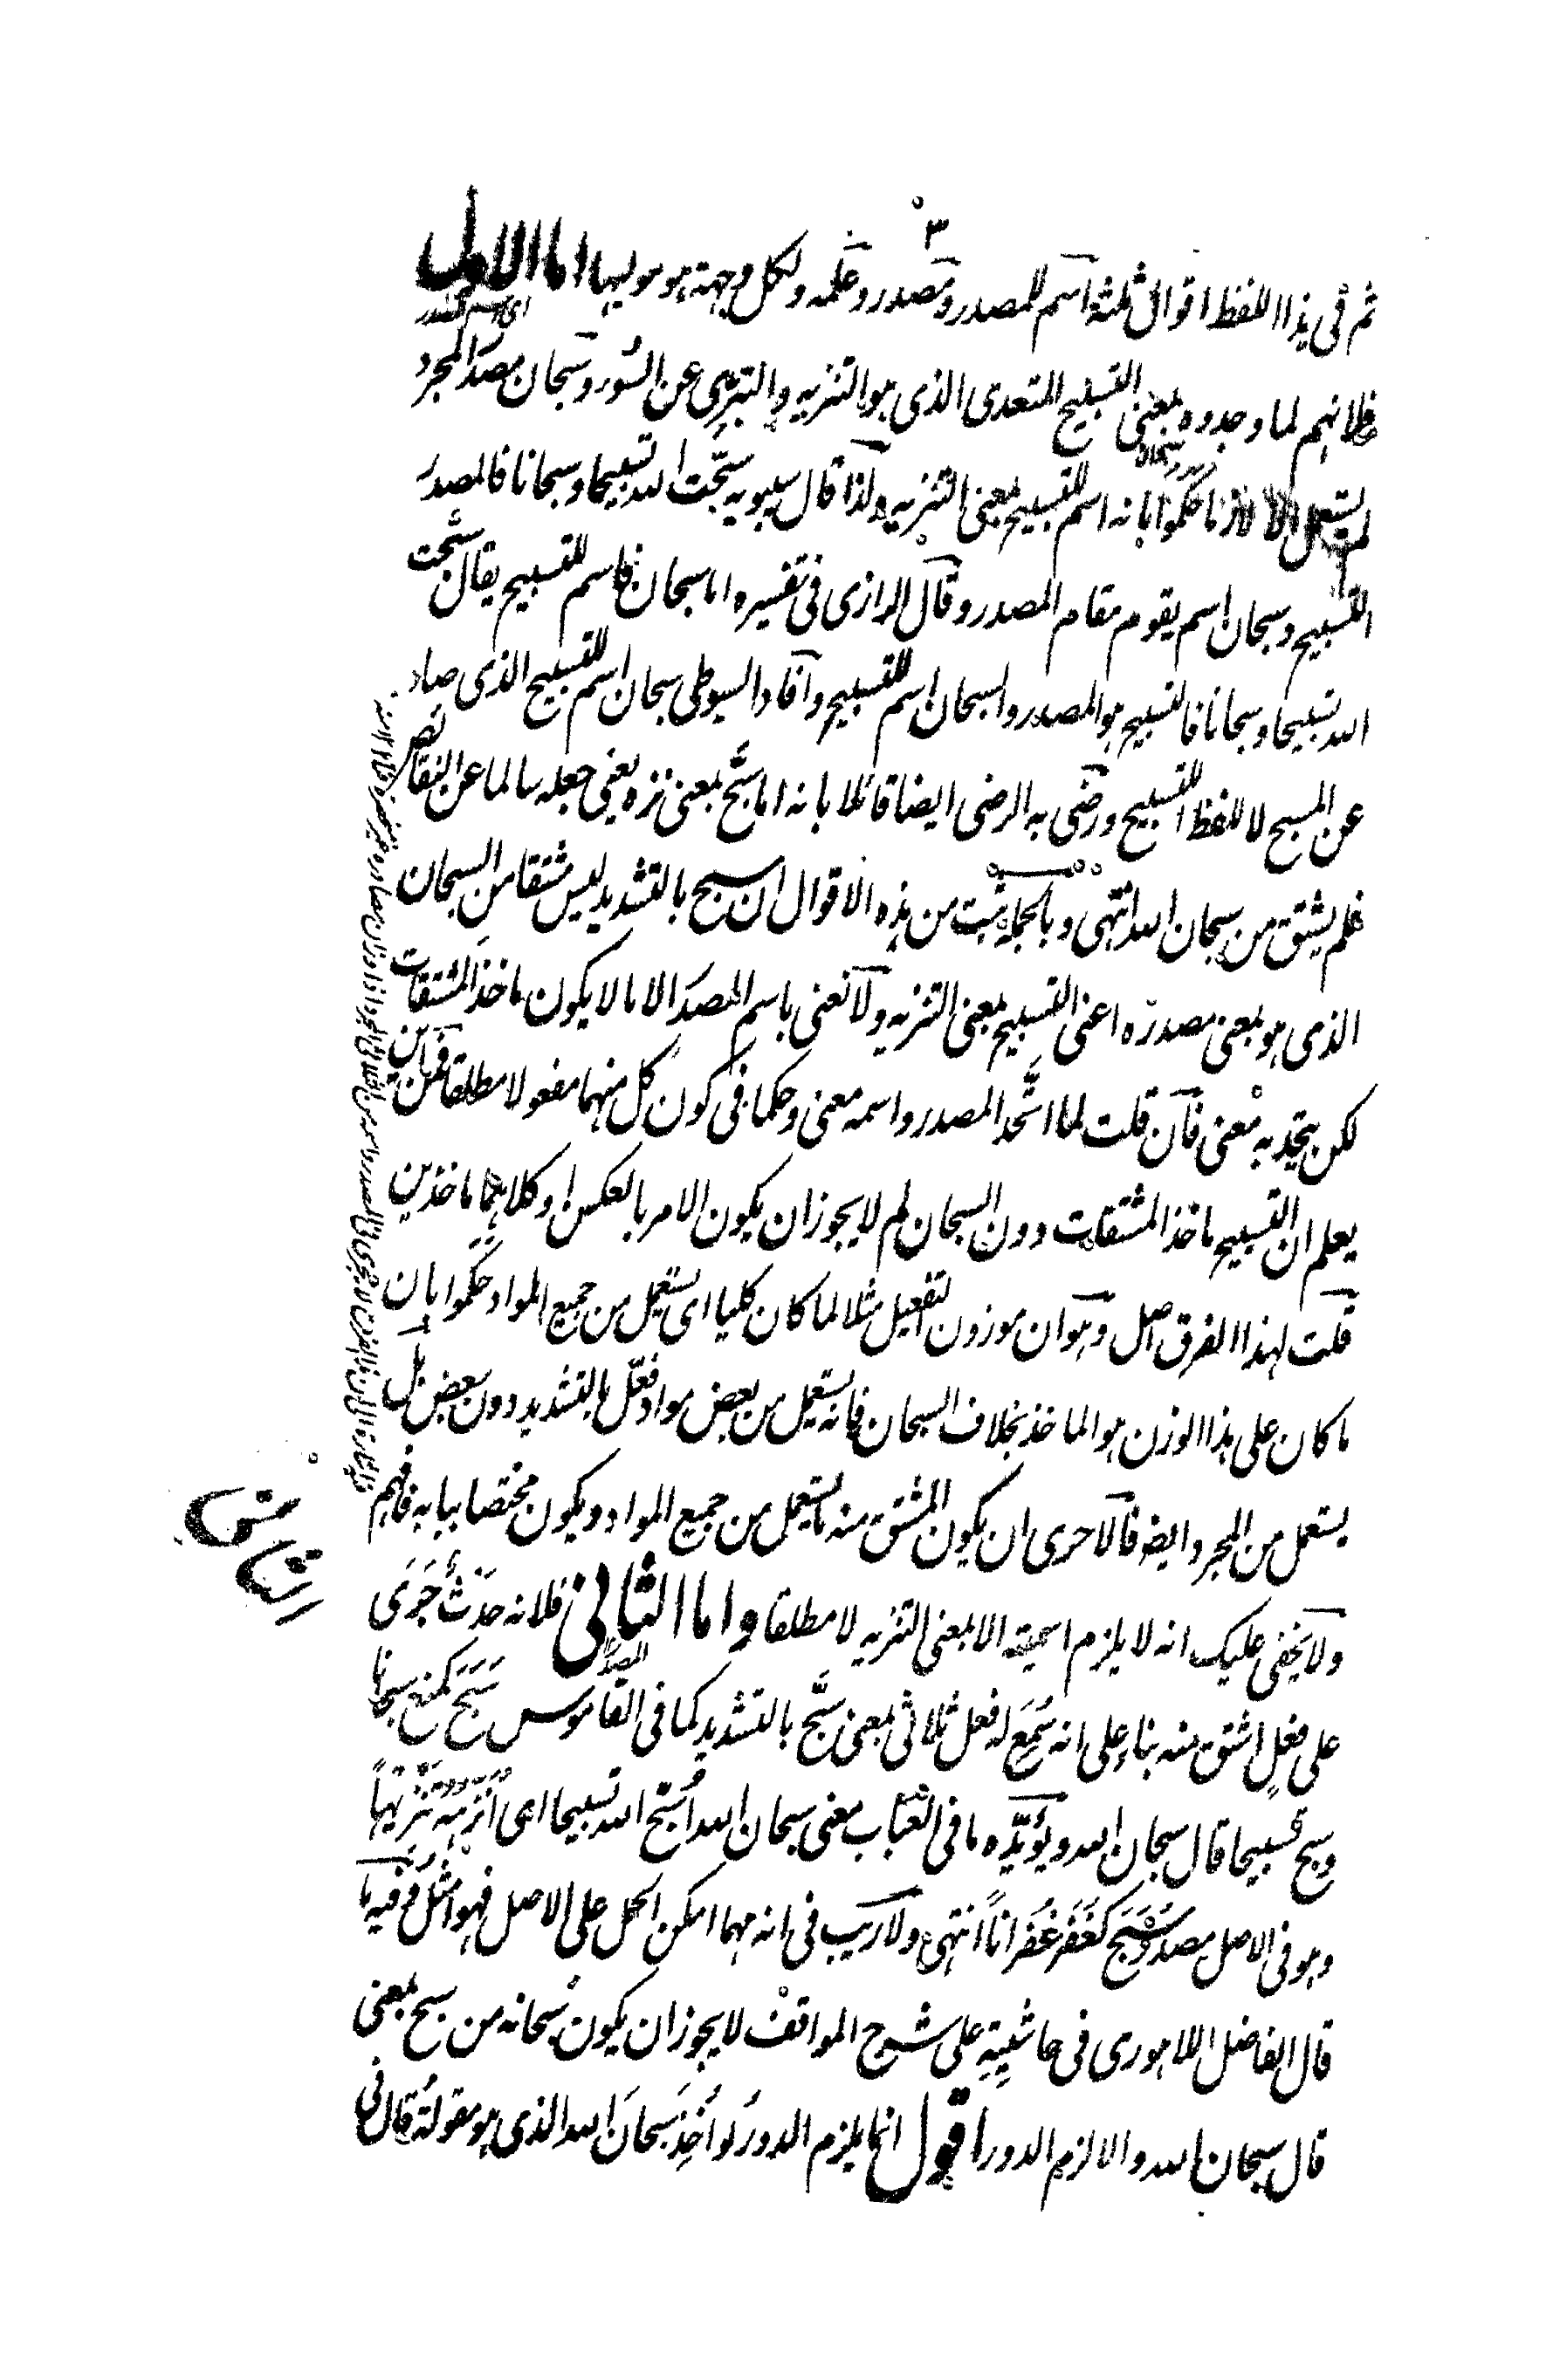 ٣
ثم فى هذا اللفظ اقوال ثلثة اسم للمصدر ومصدر وعلم له ولكل وجهة هو موليها اما الاول
اى اسم المصدر
فلانهم لما وجدوه بمعنى التسبيح المتعدى الذى هو التنزيه والتبرى عن السوء وسبحان مصدر المجرد
لم يستعمل الا لازما حكموا بانه اسم للتسبيح بمعنى التنزيه ولذا قال سيبويه سبّحت الله تسبيحا وسبحانا فالمصدر
التسبيح وسبحان اسم يقوم مقام المصدر وقال الرازى فى تفسيره اما سبحان فاسم للتسبيح يقال سبّحت
الله تسبيحا وسبحانا فالتسبيح هو المصدر والسبحان اسم للتسبيح وافاد السيوطى سبحان اسم للتسبيح الذى صادر
عن المسبح لا للفظ التسبيح ورضى به الرضى ايضا قائلا بانه اما سبّح بمعنى نزه يعنى جعله سالما عن النقائص
فلم يشتق من سبحان الله انتهى وبالجملة ثبت من هذه الاقوال ان سبح بالتشديد ليس مشتقا من السبحان
الذى هو بمعنى مصدره اعنى التسبيح بمعنى التنزيه ولا نعنى باسم المصدر الا ما لا يكون ماخذ المشتقات
لكن يتحد به معنى فان قلت لما اتّحد المصدر واسمه معنى وحكما فى كون كل منهما مفعولا مطلقا فمن اين
يعلم ان التسبيح ماخذ المشتقات دون السبحان لم لا يجوز ان يكون الامر بالعكس او كلاهما ماخذين
قلت لهذا الفرق اصل وهو ان موزون التفعيل مثلا لما كان كليا اى يستعمل من جميع المواد حكموا بان
ما كان على هذا الوزن هو الماخذ بخلاف السبحان فانه يستعمل من بعض مواد فعّل بالتشديد دون بعض بل
يستعمل من المجرد ايضا فالاحرى ان يكون المشتق منه ما يستعمل من جميع المواد ويكون مختصا ببابه فافهم
ولا يخفى عليك انه لا يلزم اسميته الا بمعنى التنزيه لا مطلقا واما الثانى فلانه حَدَثٌ جَرَى
المصدر
على فعل اشتق منه بناء على انه سُمِعَ له فعل ثلاثى بمعنى سبّح بالتشديد كما فى القاموس سَبَحَ كمنع سبحانا
وسبح تسبيحا قال سبحان الله ويؤيّده ما فى العباب معنى سبحان الله اُسبّح الله تسبيحا اى اُنزّهه تنزيهاً
وهو فى الاصل مصدر سَبَحَ كغَفَرَ غفراناً انتهى ولا ريب فى انه مهما امكن الحمل على الاصل فهو امثل وفيه ما
قال الفاضل اللاهورى فى حاشيته على شرح المواقف لا يجوز ان يكون سبحانه من سبح بمعنى
قال سبحان الله والا لزم الدور اقول انما يلزم الدور لو اُخِذَ سبحانَ الله الذى هو مقولة قال فى